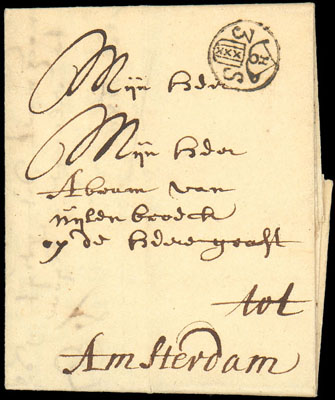 3 S
xxx
V
Mijn heer
Mijn heer
Abram van
nijlenbroeck
op de heeregraft
tot
Amsterdam